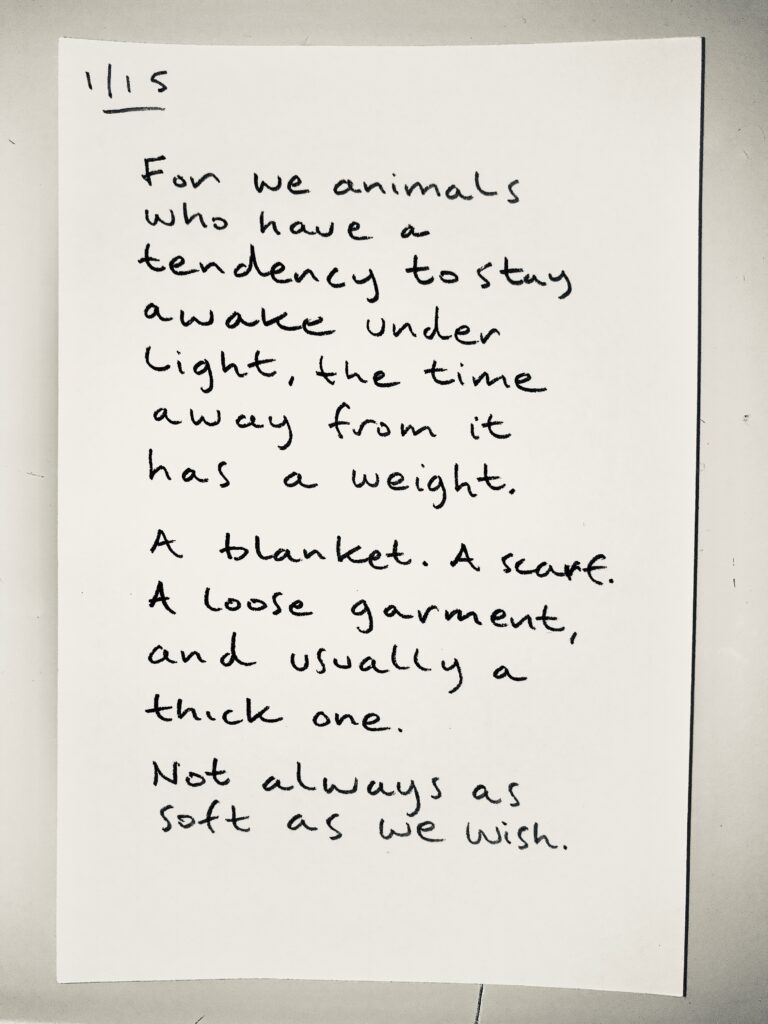 1/15
For we animals
who have a
tendency to stay
awake under
light, the time
away from it
has a weight.
A blanket. A scarf.
A loose garment,
and usually a
thick one.
Not always as
soft as we wish.